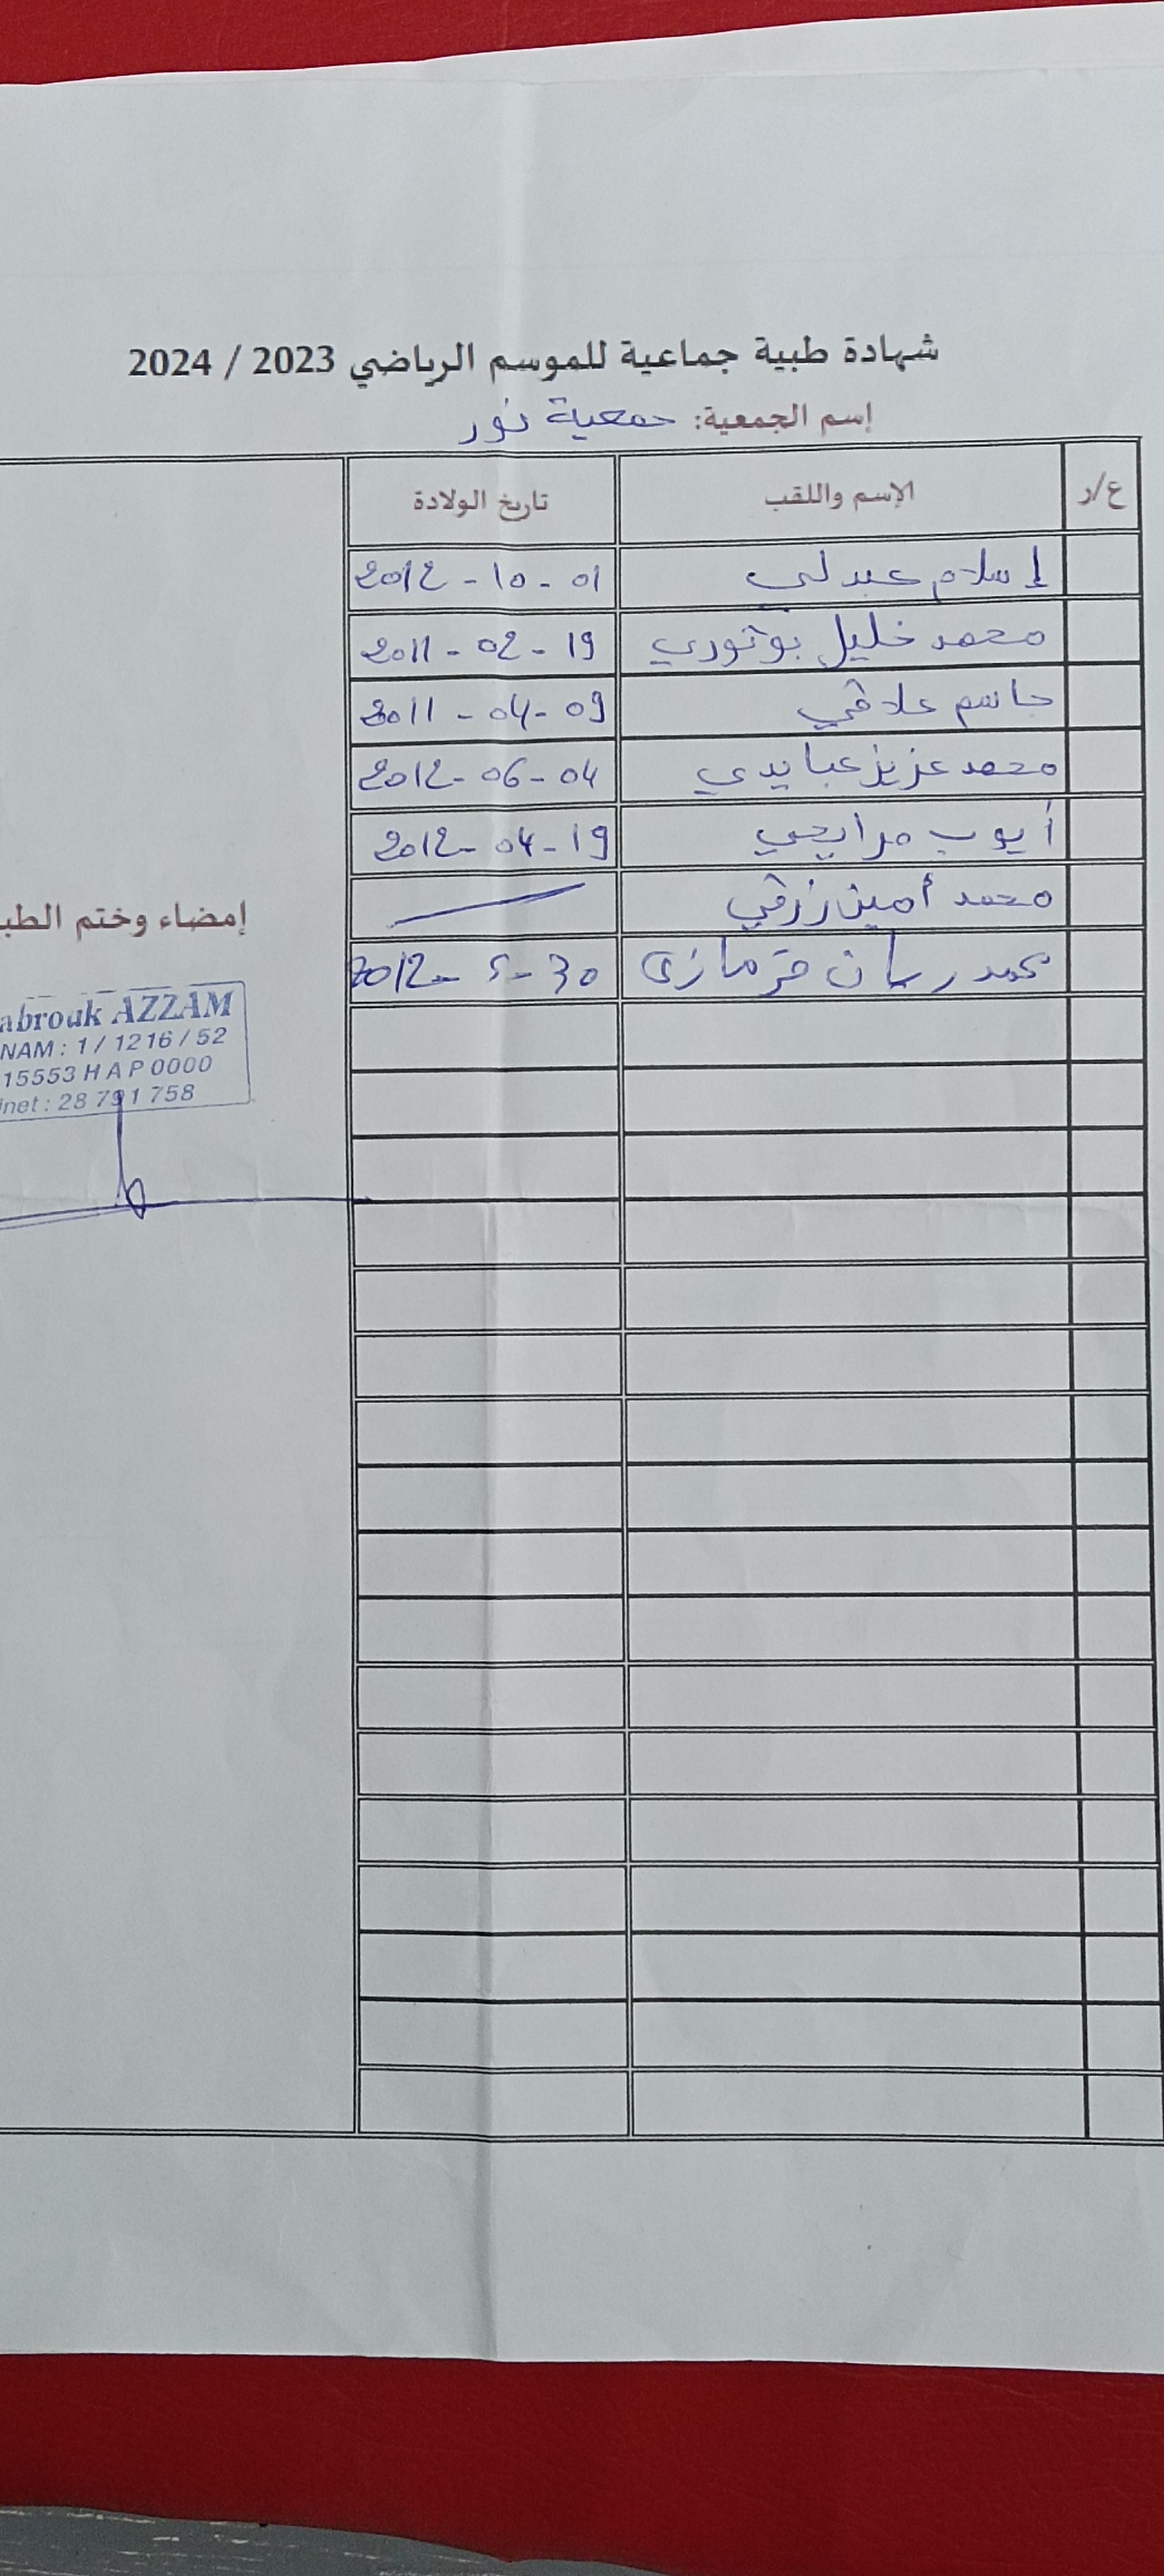 شهادة طبية جماعية للموسم الرياضي 2023 / 2024
إسم الجمعية: جمعية نور
ع/ر الإسم واللقب تاريخ الولادة
إسلام عبدلي 2012 - 10 - 01
محمد خليل بوثوري 2011 - 02 - 19
جاسم علاقي 2011 - 04 - 09
محمد عزيز عبايدي 2012 - 06 - 04
أيوب مرايحي 2012 - 04 - 19
محمد أمين زرقي
محمد ريان قرمازي 2012 - 5 - 30
إمضاء وختم الطب
abrouk AZZAM
NAM : 1 / 1216 / 52
15553 H A P 0000
inet : 28 791 758